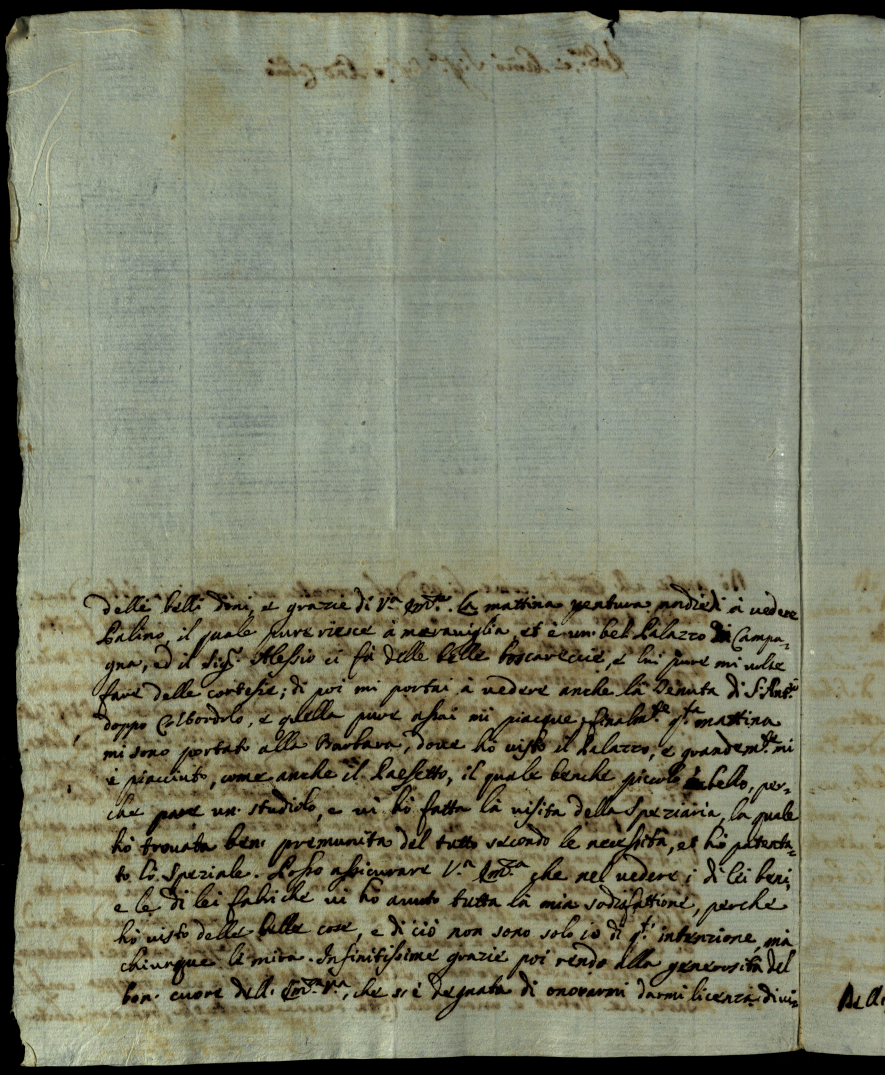 delle belle doni, e grazie di V.ª Em.ª. La mattina ventura andiedi à vedere
Palino, il quale pure riesce à meraviglia, et è un bel Palazzo di Campa-
gna, ed il Sig.r Alessio ci fà delle belle boscareccie, e lui pure mi volse
fare delle cortesie; di poi mi portai à vedere anche la Tenuta di S. Ant.o
doppo Colbordolo, e quella pure assai mi piacque, finalm.te q.ta mattina
mi sono portato alla Barbara, dove hò visto il Palazzo, e grandem.te mi
è piacciuto, come anche il Paesetto, il quale benche piccolo è bello, per-
che pare un studiolo, e vi hò fatta la visita della Speziaria, la quale
hò trovata ben premunita del tutto secondo le necessità, et hò patenta-
to lo Speziale. Posso assicurare V.ª Em.ª che nel vedere i di lei beni,
e le di lei fabriche vi hò avuto tutta la mia sodisfattione, perche
hò visto delle belle cose, e di ciò non sono solo io di q.ta intenzione, mà
chiunque le mira. Infinitissime grazie poi rendo alla generosità del
bon cuore dell' Em.ª V.ª, che si è degnata di onorarmi darmi licenza di vi-